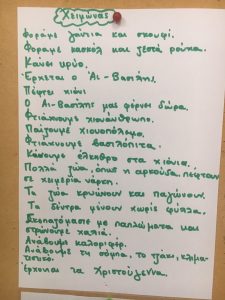 Χειμώνας
Φοράμε γάντια και σκουφί.
Φοράμε κασκόλ και ζεστά ρούχα.
Κάνει κρύο.
Έρχεται ο Άι-Βασίλης.
Πέφτει χιόνι
Ο Άι-Βασίλης μας φέρνει δώρα.
Φτιάχνουμε χιονάνθρωπο.
Παίζουμε χιονοπόλεμο.
Φτιάχνουμε βασιλόπιτα.
Κάνουμε έλκηθρο στα χιόνια.
Πολλά ζώα, όπως η αρκούδα, πέφτουν
σε χειμερία νάρκη.
Τα ζώα κρυώνουν και παγώνουν.
Τα δέντρα μένουν χωρίς φύλλα.
Σκεπαζόμαστε με παπλώματα και
στρώνουμε χαλιά.
Ανάβουμε καλοριφέρ.
Ανάβουμε τη σόμπα, το τζάκι, κλιμα-
τιστικό.
Έρχονται τα Χριστούγεννα.